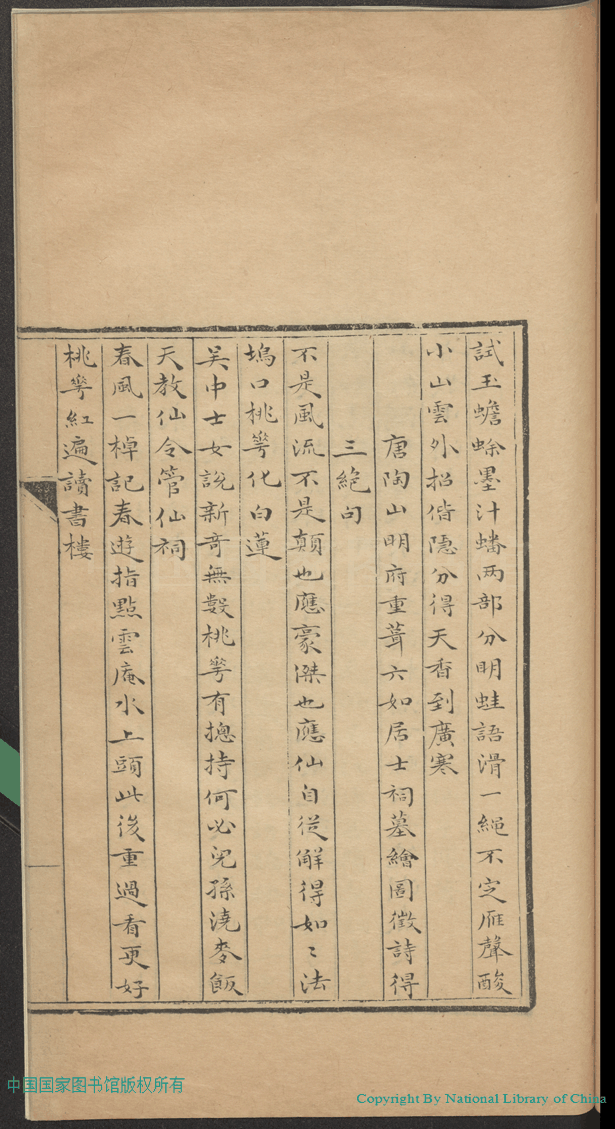 試玉蟾蜍墨汁蟠兩部分明蛙語滑一繩不定雁聲酸
小山雲外招偕隱分得天香到廣寒
唐陶山明府重葺六如居士祠墓繪圖徵詩得
三絕句
不是風流不是顛也應豪傑也應仙自從解得如〻法
塢口桃花化白蓮
吴中士女說新奇無數桃花有摠持何必兒孫澆麥飯
天教仙令管仙祠
春風一棹記春遊指點雲庵水上頭此後重過看更好
桃花紅遍讀書樓
中国国家图书馆版权所有
Copyright By National Library of China